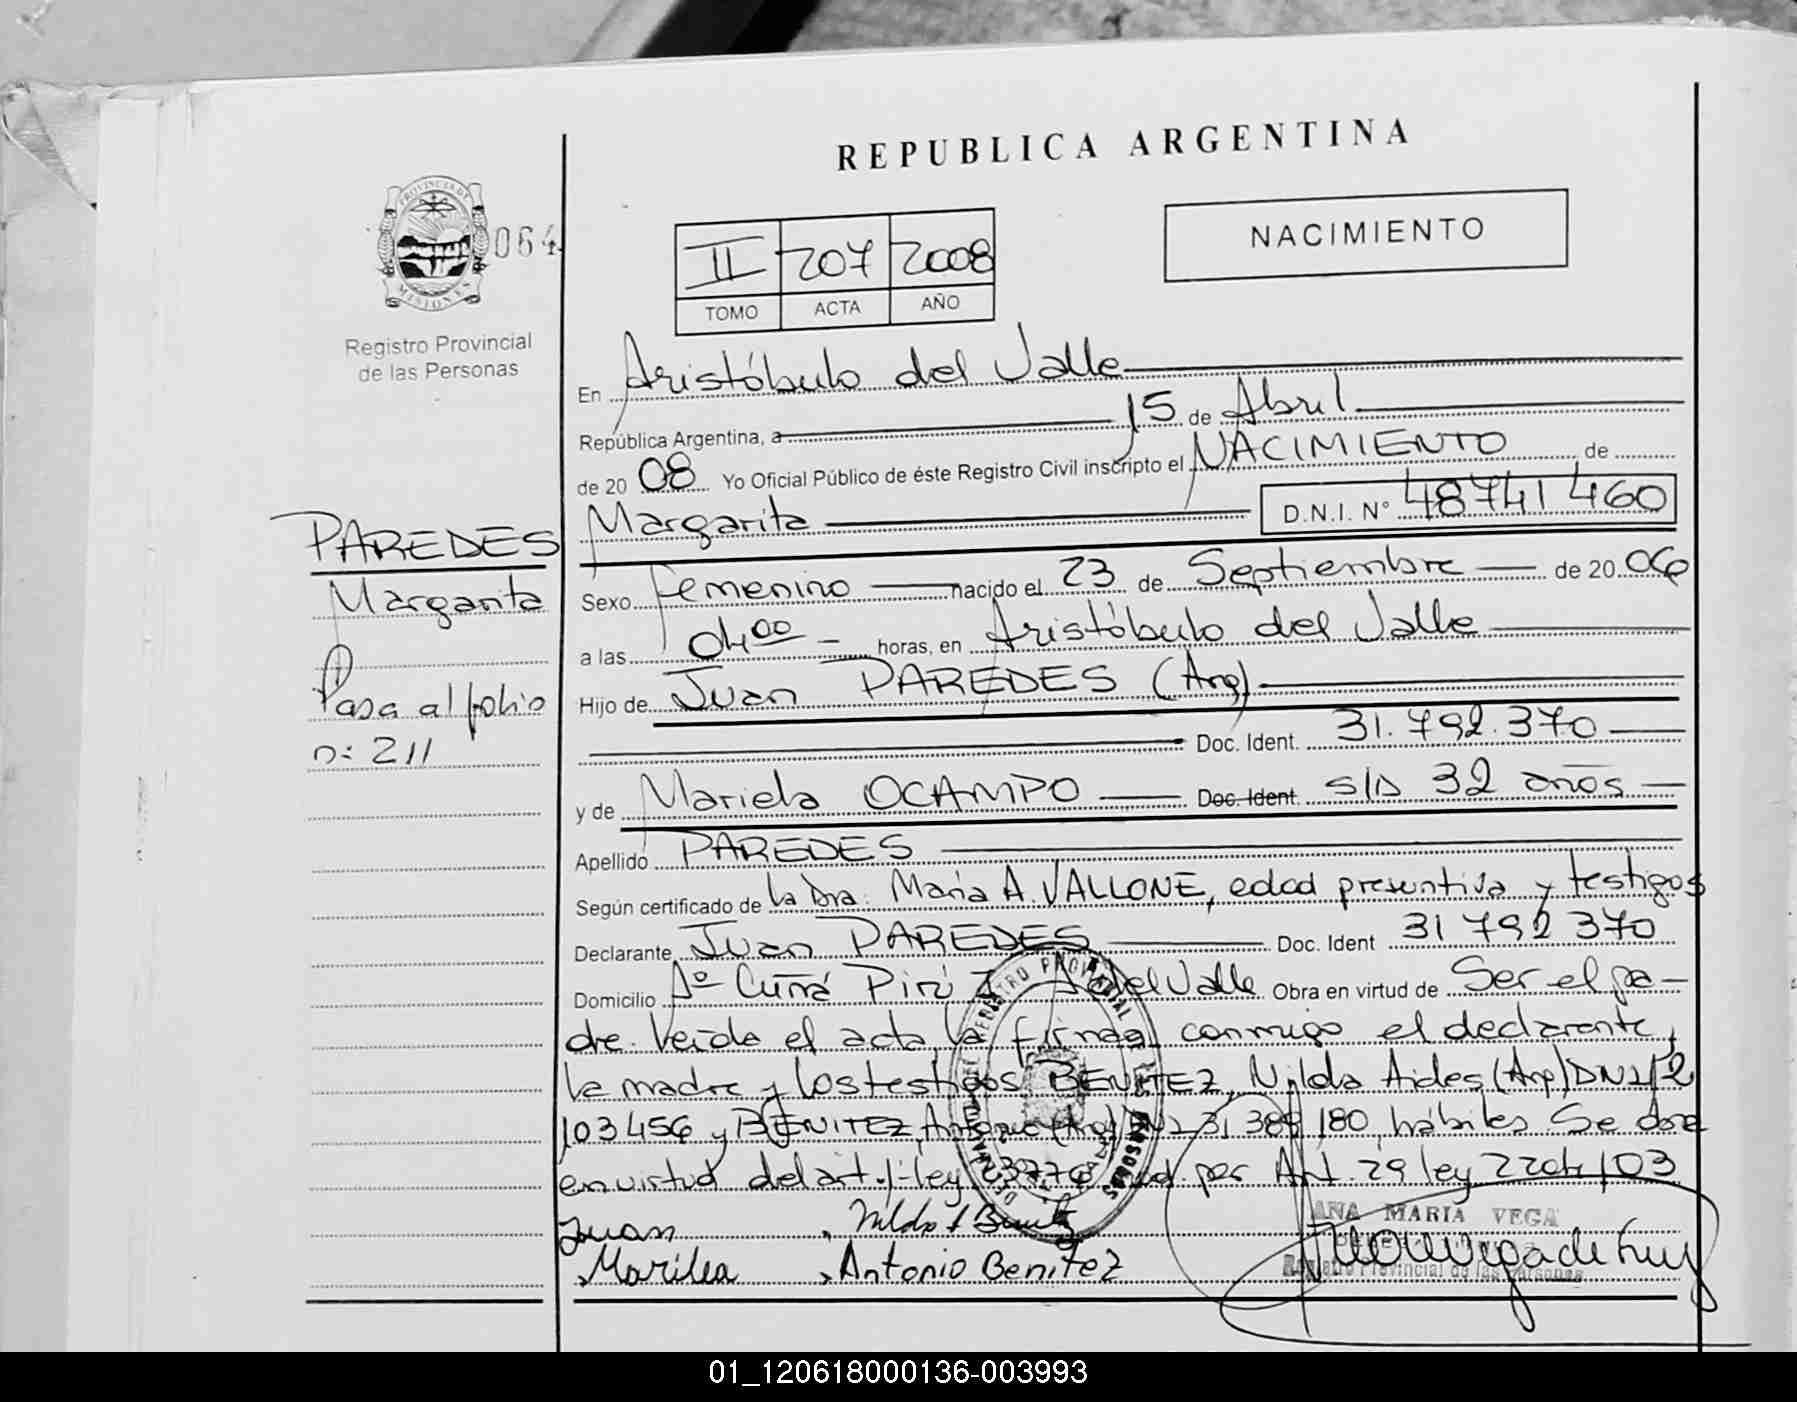 REPUBLICA ARGENTINA
PROVINCIA DE
MISIONES
064
Registro Provincial
de las Personas
II 207 2008
TOMO ACTA AÑO
NACIMIENTO
En Aristóbulo del Valle
República Argentina, a 15 de Abril
de 2008 Yo Oficial Público de éste Registro Civil inscripto el NACIMIENTO de
Margarita D.N.I. N° 48741460
PAREDES
Margarita
Pasa al folio
n: 211
Sexo Femenino nacido el 23 de Septiembre de 2006
a las 04 00 horas, en Aristóbulo del Valle
Hijo de Juan PAREDES (Arg)
Doc. Ident. 31.792.370
y de Mariela OCAMPO Doc. Ident. S/D 32 años
Apellido PAREDES
Según certificado de la Dra. Maria A. VALLONE, edad presuntiva y testigos
Declarante Juan PAREDES Doc. Ident 31 792 370
Domicilio Aº Cuñá Pirú del Valle Obra en virtud de Ser el pa-
dre. Leida el acta la firman conmigo el declarante,
la madre y los testigos BENITEZ, Nilda Aides (Arg) DNI
103456 y BENITEZ, Antonio (Arg) DNI 31 389 180, hábiles Se
en virtud del art. 1- ley por Art. 29 ley
Juan , Nilda A Benitez
Marilea , Antonio Benitez
ANA MARIA VEGA
Registro Provincial de las Personas
01_120618000136-003993